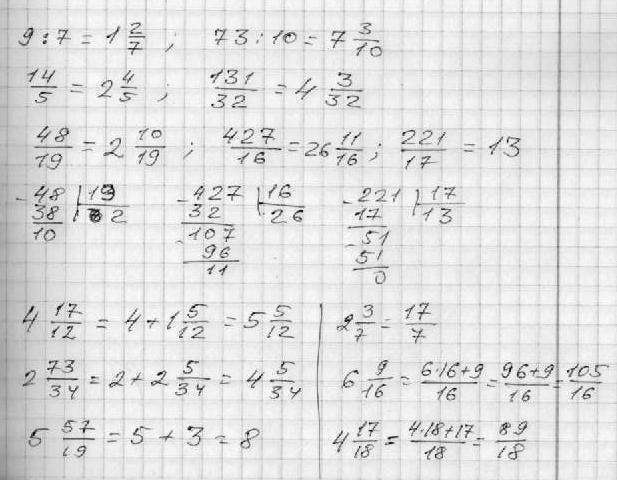 9 : 7 = 1 2/7 ; 73 : 10 = 7 3/10
14/5 = 2 4/5 ; 131/32 = 4 3/32
48/19 = 2 10/19 ; 427/16 = 26 11/16 ; 221/17 = 13
- 48 | 19 - 427 | 16 - 221 | 17
38 | 2 32 | 26 17 | 13
10 - 107 - 51
96 51
11 0
4 17/12 = 4 + 1 5/12 = 5 5/12
2 73/34 = 2 + 2 5/34 = 4 5/34
5 57/19 = 5 + 3 = 8
2 3/7 = 17/7
6 9/16 = 6·16+9/16 = 96+9/16 = 105/16
4 17/18 = 4·18+17/18 = 89/18